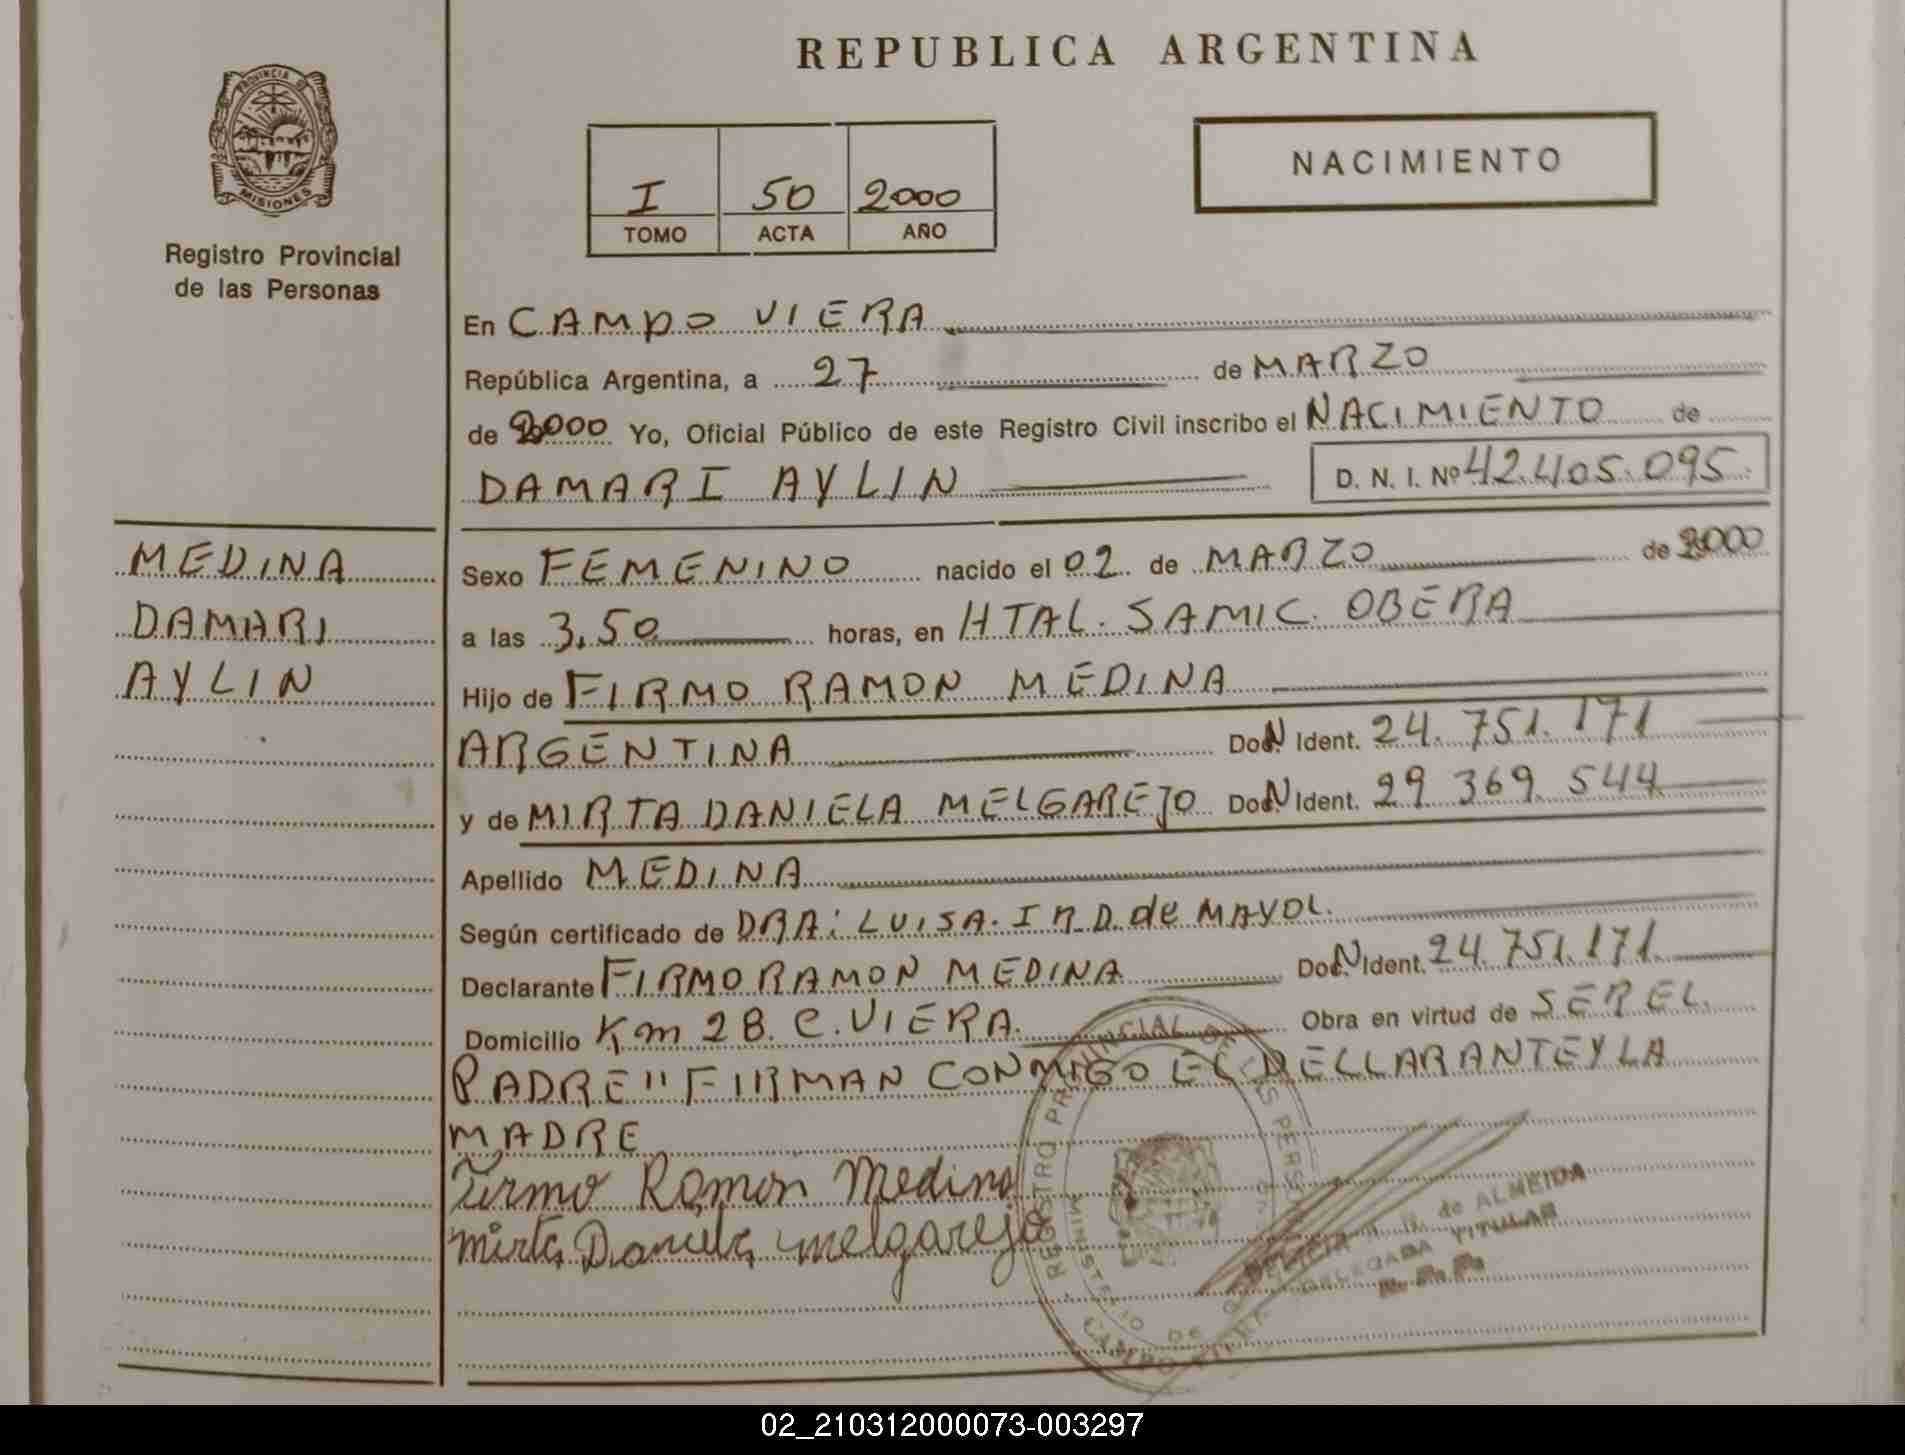 REPUBLICA ARGENTINA
PROVINCIA DE
MISIONES
Registro Provincial
de las Personas
I 50 2000
TOMO ACTA AÑO
NACIMIENTO
En CAMPO VIERA
República Argentina, a 27 de MARZO
de 2000 Yo, Oficial Público de este Registro Civil inscribo el NACIMIENTO de
DAMARI AYLIN D. N. I. Nº 42.405.095
MEDINA
DAMARI
AYLIN
Sexo FEMENINO nacido el 02 de MARZO de 2000
a las 3,50 horas, en HTAL. SAMIC. OBERA
Hijo de FIRMO RAMON MEDINA
ARGENTINA Doc. N Ident. 24.751.171
y de MIRTA DANIELA MELGAREJO Doc. N Ident. 29 369 544
Apellido MEDINA
Según certificado de DRA: LUISA. I R D. de MAYOL.
Declarante FIRMO RAMON MEDINA Doc. N Ident. 24.751.171
Domicilio Km 28. C. VIERA. Obra en virtud de SER EL
PADRE" FIRMAN CONMIGO EL DELLARANTE Y LA
MADRE
Firmo Ramon Medina
Mirta Daniela melgarejo
REGISTRO PROVINCIAL DE LAS PERSONAS
MINISTERIO DE
CAMPO VIERA
de ALMEIDA
DELEGADA TITULAR
R. P. P.
02_210312000073-003297